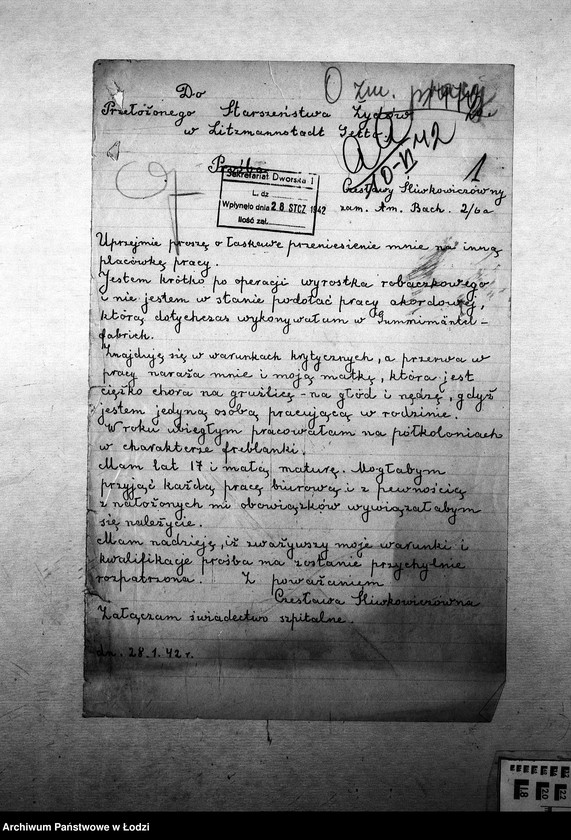 Do
Przełożonego Starszeństwa Żydów
w Litzmannstadt Getto.
O zm. pracy
ad
10-II 42
1
Prośba
Sekretariat Dworska 1
L. dz.
Wpłynęło dnia 28 STCZ 1942
Ilość zał.
Czesławy Śliwkowiczówny
zam. Am. Bach. 2/6a
Uprzejmie proszę o łaskawe przeniesienie mnie na inną
placówkę pracy.
Jestem krótko po operacji wyrostka robaczkowego
i nie jestem w stanie podołać pracy akordowej,
którą dotychczas wykonywałam w Gummimäntel-
fabrick.
Znajduję się w warunkach krytycznych, a przerwa w
pracy naraża mnie i moją matkę, która jest
ciężko chora na gruźlicę - na głód i nędzę, gdyż
jestem jedyną osobą pracującą w rodzinie.
W roku ubiegłym pracowałam na półkoloniach
w charakterze freblanki.
Mam lat 17 i małą maturę. Mogłabym
przyjąć każdą pracę biurową i z pewnością
z nałożonych mi obowiązków wywiązałabym
się należycie.
Mam nadzieję, iż zważywszy moje warunki i
kwalifikacje prośba ma zostanie przychylnie
rozpatrzona. Z poważaniem
Czesława Śliwkowiczówna
Załączam świadectwo szpitalne.
dn. 28.1.42 r.
18 20 22
Archiwum Państwowe w Łodzi